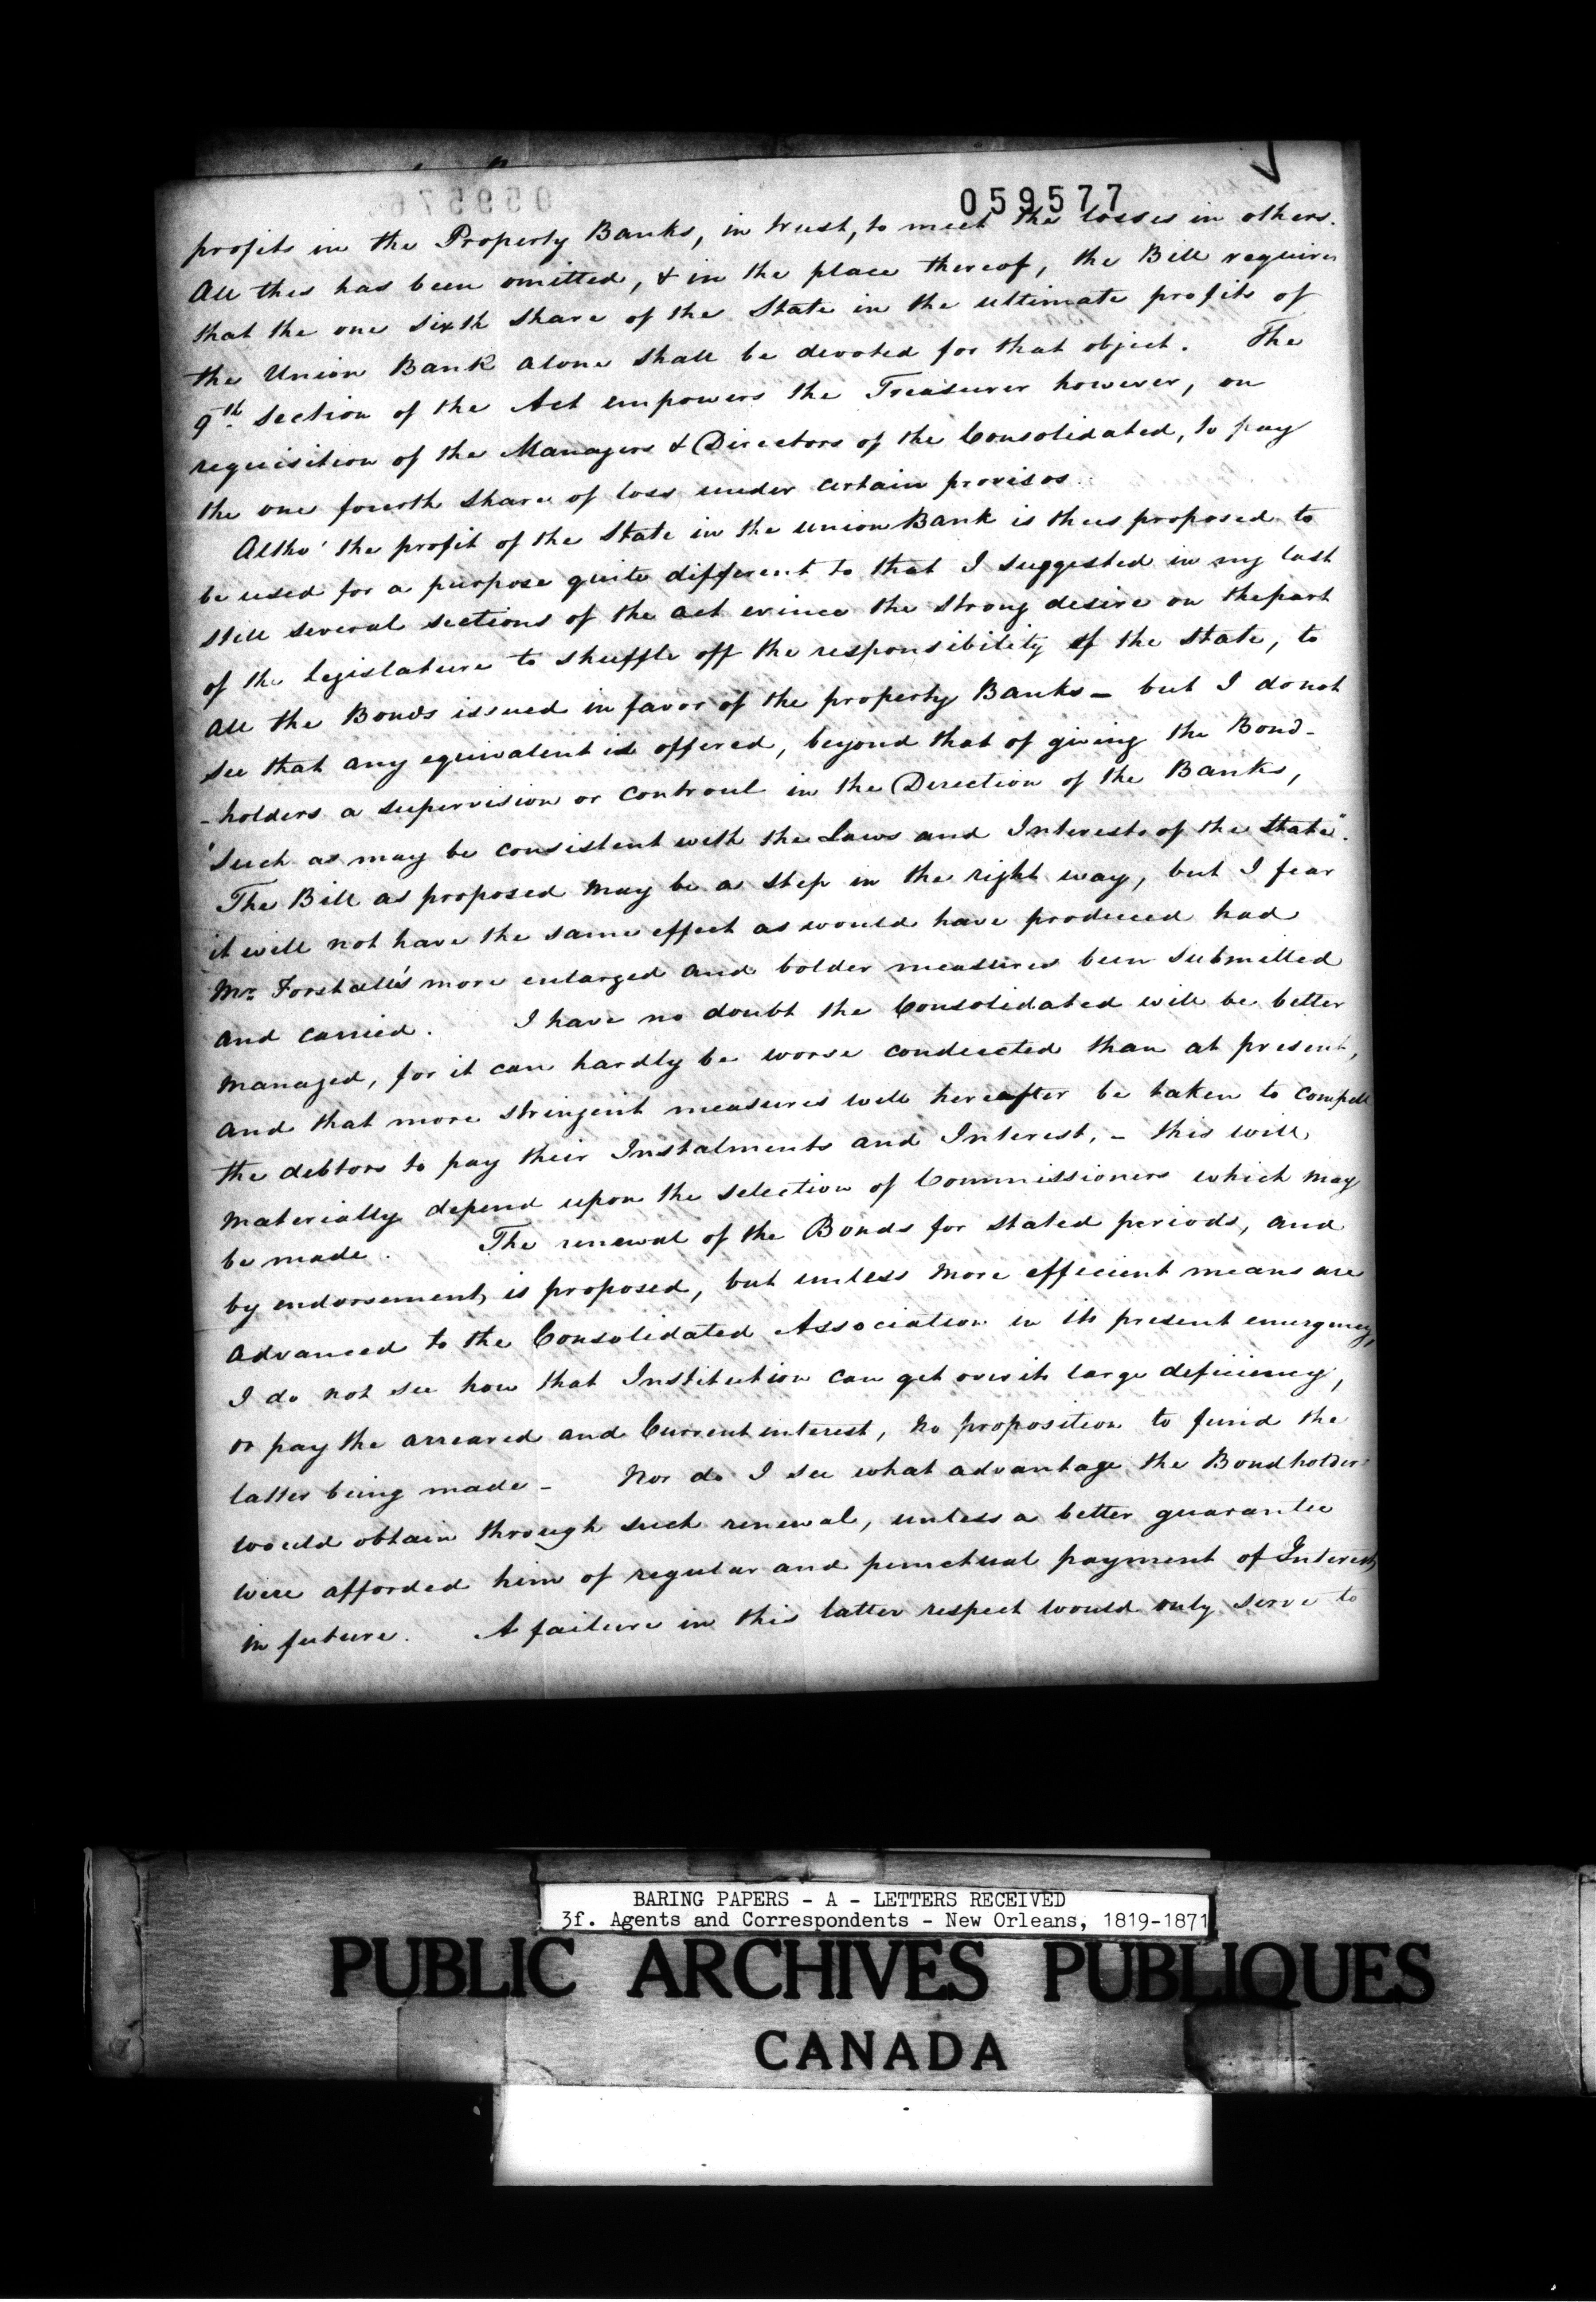 059577
profits in the Property Banks, in trust, to meet the losses in others.
All this has been omitted, & in the place thereof, the Bill requires
that the one sixth share of the State in the ultimate profits of
the Union Bank alone shall be devoted for that object. The
9th. section of the Act empowers the Treasurer however, on
requisition of the Managers & Directors of the Consolidated, to pay
the one fourth share of loss under certain provisos.
Altho' the profit of the State in the Union Bank is thus proposed to
be used for a purpose quite different to that I suggested in my last
still several sections of the act evince the strong desire on the part
of the Legislature to shuffle off the responsibility of the State, to
all the Bonds issued in favor of the property Banks - but I do not
see that any equivalent is offered, beyond that of giving the Bond-
-holders a supervision or controul in the Direction of the Banks,
"such as may be consistent with the Laws and Interests of the State".
The Bill as proposed may be a step in the right way, but I fear
it will not have the same effect as would have produced had
Mr Forstall's more enlarged and bolder measures been submitted
and carried. I have no doubt the Consolidated will be better
managed, for it can hardly be worse conducted than at present,
and that more stringent measures will hereafter be taken to compell
the debtors to pay their Instalments and Interest, - this will
materially depend upon the selection of Commissioners which may
be made. The renewal of the Bonds for stated periods, and
by endorsement, is proposed, but unless more efficient means are
advanced to the Consolidated Association in its present emergency,
I do not see how that Institution can get over its large deficiency,
or pay the arreared and Current interest, no proposition to fund the
latter being made - Nor do I see what advantage the Bondholders
would obtain through such renewal, unless a better guarantee
were afforded him of regular and punctual payment of Interest
in future. A failure in this latter respect would only serve to
BARING PAPERS - A - LETTERS RECEIVED
3f. Agents and Correspondents - New Orleans, 1819-1871
PUBLIC ARCHIVES PUBLIQUES
CANADA